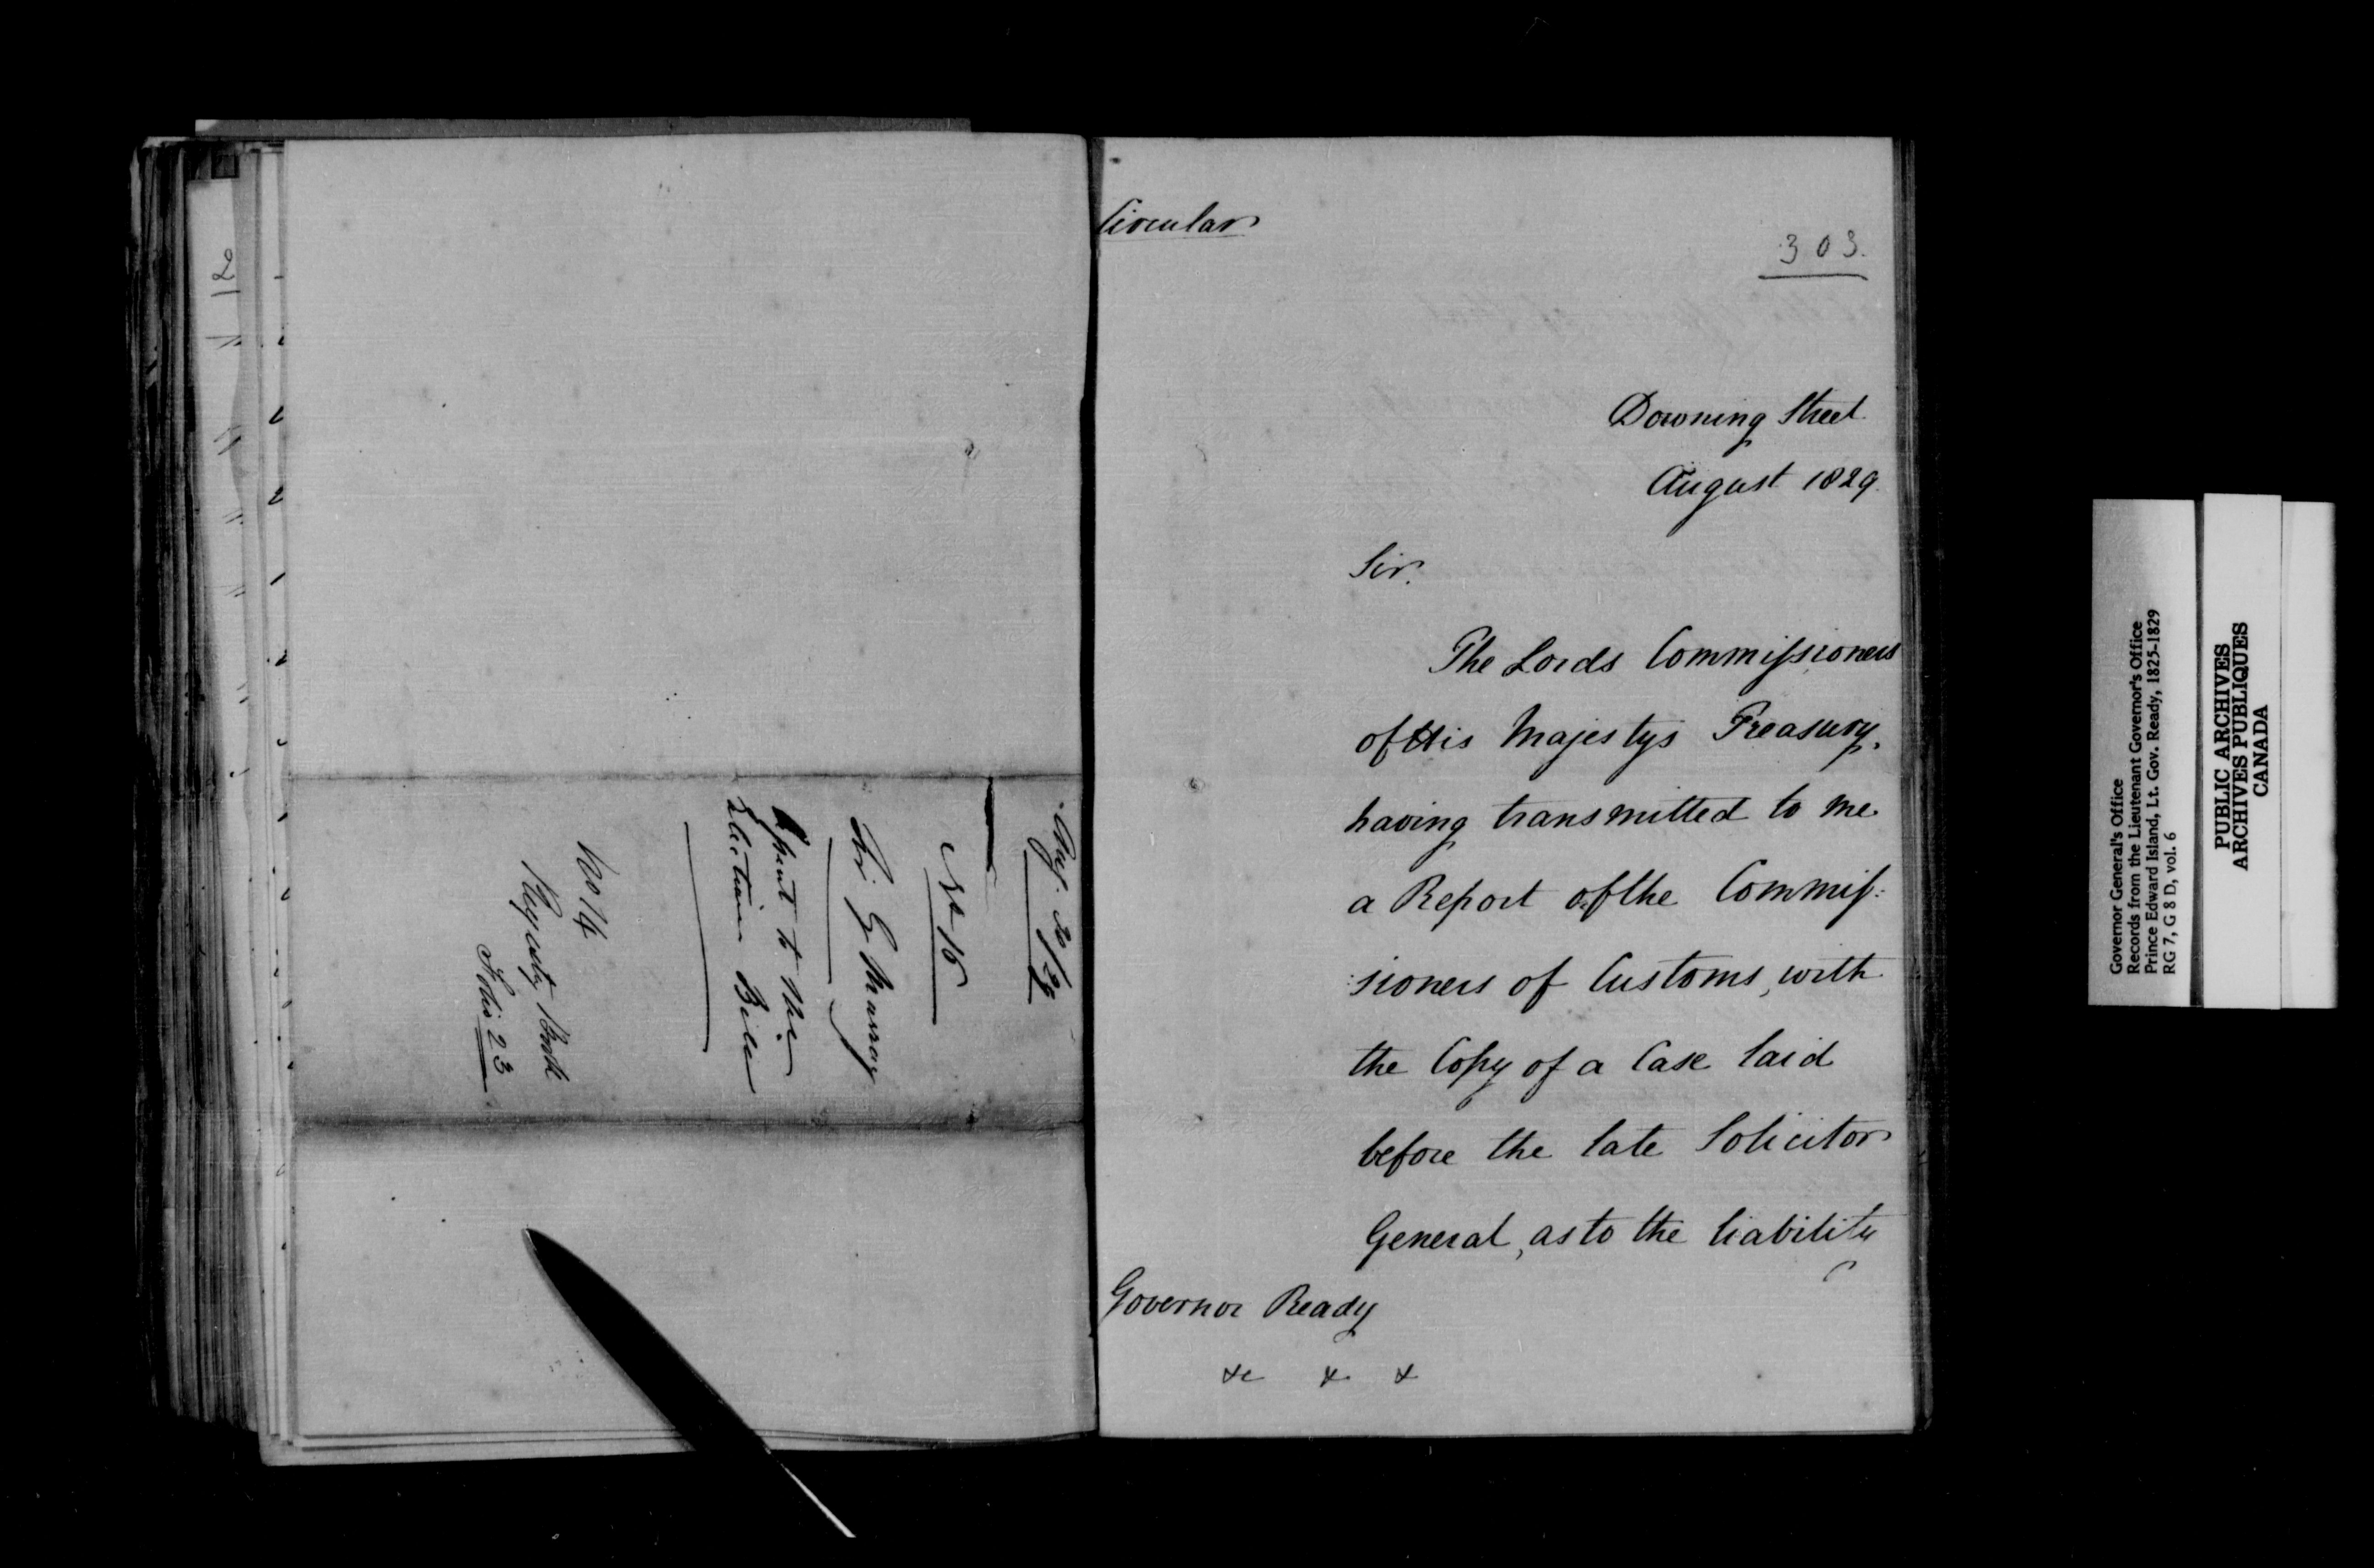 Aug. 20/29
No 16
Sir G Murray
Assent to the
Election Bill
No 14
Book
Folio 23
Circular
303.
Downing Street
August 1829.
Sir.
The Lords Commissioners
of His Majestys Treasury,
having transmitted to me
a Report of the Commis:
:sioners of Customs, with
the Copy of a Case laid
before the late Solicitor
General, as to the liability
Governor Ready
&c & &
Governor General's Office
Records from the Lieutenant Governor's Office
Prince Edward Island, Lt. Gov. Ready, 1825-1829
RG 7, G 8 D, vol. 6
PUBLIC ARCHIVES
ARCHIVES PUBLIQUES
CANADA